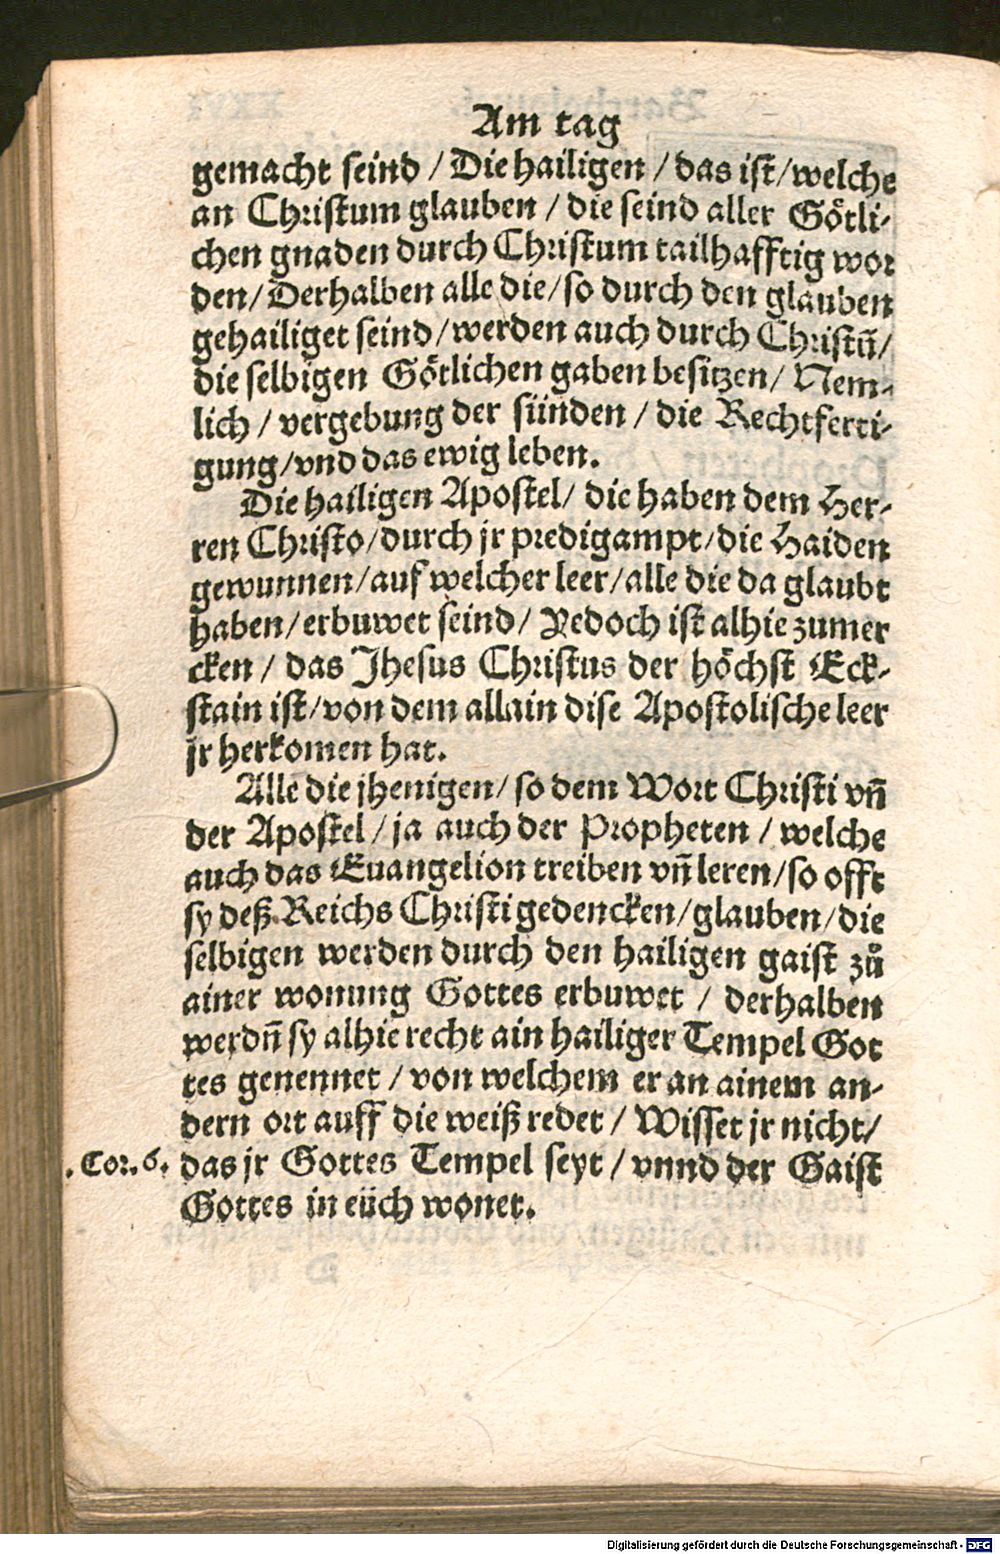 Am tag
gemacht seind / Die hailigen / das ist / welche
an Christum glauben / die seind aller Götli-
chen gnaden durch Christum tailhafftig wor
den / Derhalben alle die / so durch den glauben
gehailiget seind / werden auch durch Christū /
die selbigen Götlichen gaben besitzen / Nem-
lich / vergebung der sünden / die Rechtferti-
gung / vnd das ewig leben.
Die hailigen Apostel / die haben dem Her-
ren Christo / durch jr predigampt / die Haiden
gewunnen / auf welcher leer / alle die da glaubt
haben / erbuwet seind / Yedoch ist alhie zumer
cken / das Jhesus Christus der höchst Eck-
stain ist / von dem allain dise Apostolische leer
jr herkomen hat.
Alle die jhenigen / so dem Wort Christi vñ
der Apostel / ja auch der Propheten / welche
auch das Euangelion treiben vñ leren / so offt
sy deß Reichs Christi gedencken / glauben / die
selbigen werden durch den hailigen gaist zů
ainer wonung Gottes erbuwet / derhalben
werdn̄ sy alhie recht ain hailiger Tempel Got
tes genennet / von welchem er an ainem an-
dern ort auff die weiß redet / Wisset jr nicht /
.Cor.6. das jr Gottes Tempel seyt / vnnd der Gaist
Gottes in eüch wonet.
Digitalisierung gefördert durch die Deutsche Forschungsgemeinschaft - DFG